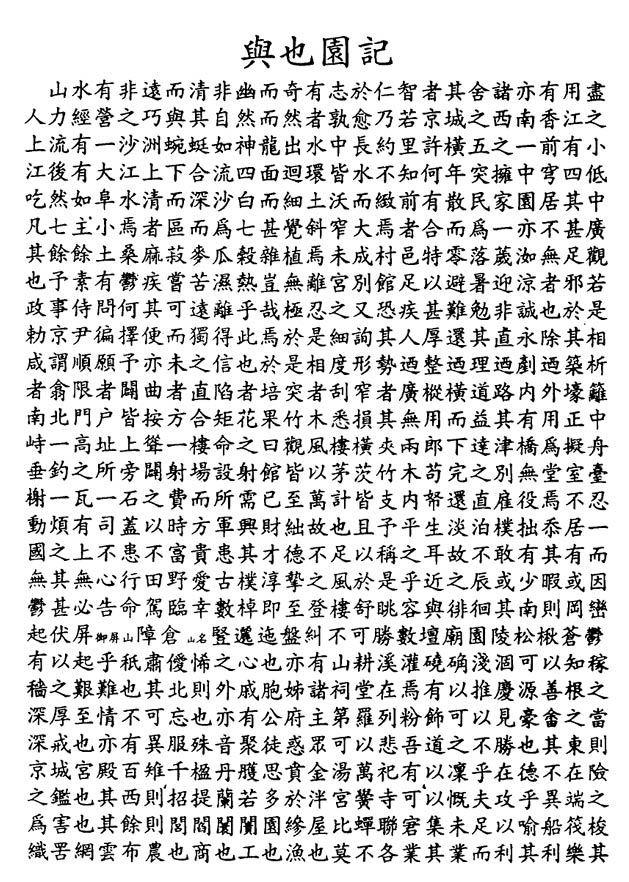 與也園記
山水有非遠而清非幽而奇有志於仁智者其舍諸亦有用盡
人力經營之巧與其自然而然者敦愈乃若京城之西南香江之
上流有一沙洲蜿蜓如神龍出水中長約里許橫五之一前有小
江後有大江上下合流四面迴環皆水不知何年突擁中穹四低
吃然如阜水清而深沙白而細土沃而緻前有散民家園居其中
凡七主小焉者區而爲七甚覺斜窄大焉者合而爲一亦不甚廣
其餘餘土桑麻菽麥瓜穀雜植焉未成村邑特零落葳洳無足觀
也子素有鬱疾嘗苦濕熱豈無離宮別館足以避暑迎涼者邪若
政事侍問何其可遠離乎哉極忍之又恐疾甚難勉非誠也於是
勅京尹徧擇便而獨得此焉於是細詢其人厚還其直永除其相
咸謂順願子亦未之信也於是相度形勢迺整迺理迺劃迺築析
者翕限者闢曲者直陷者培突者刮窄者廣樅橫道路內外壕籬
南北門户皆按方合矩花果竹木悉損其無用而益其有用正中
峙一高址上聳一樓命之曰觀風樓橫夾兩郎下達津橋爲擬舟
垂釣之所旁闢射場設射館皆以茅茨竹木苟完之別無堂室臺
榭一瓦一石之費而所需已至萬計皆支內帑還直雇役焉不忍
動煩有司蓋以時方軍興財絀故也且予平生淡泊樸拙忝居一
國之上不患不富貴患其才德不足以稱之耳故不敢有其有而
無其無心行田野愛古樸淳摯之風於是乎近之辰或少暇或因
鬱甚必告命駕臨幸數棹即至登樓舒眺容與徘徊其南則岡巒
起伏屏御屏山障倉山名豎邐迤盤糾不可勝數壇廟園陵松楸蒼鬱
有以起乎祇肅僾悕之心也亦有山耕溪灌磽确淺涸可以知稼
穡之艱難也其北則外戚胞姊諸祠堂在焉有以推慶源善根之
深厚至情不可忘也亦有公府主第羅列粉飾可以見豪畬之當
深戒也亦有異服殊音聚徒惑眾可以悲吾道之不勝也其東則
京城宮殿百雉千楹丹雘思賁金湯萬祀有以凜乎在德不在險
之鑑也其西則招提蘭若多於泮宮黌寺可以慨夫攻乎異端之
爲害也其餘則閭閻闤闠園縿屋比蟬聯窘集未足以喻船筏梭
織罟網雲布農也商也工也漁也莫不各業其業而利其利樂其